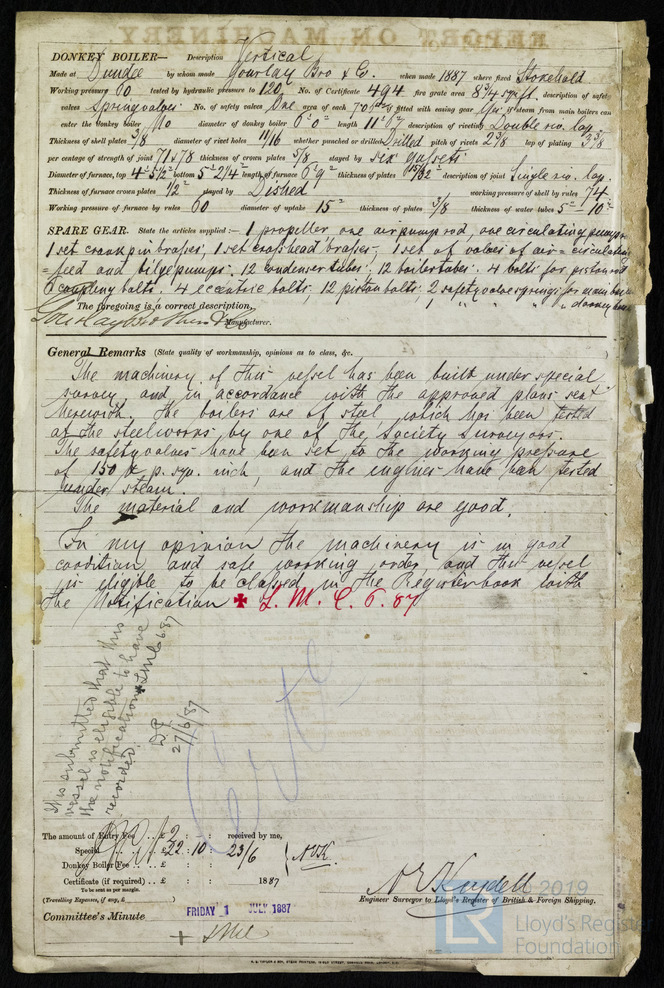 REPORT ON MACHINERY.
DONKEY BOILER— Description Vertical
Made at Dundee by whom made Gourlay Bro & Co. when made 1887 where fixed Stokehold
Working pressure 60 tested by hydraulic pressure to 120 No. of Certificate 494 fire grate area 8 3/4 sq ft. description of safety
valves Spring valves No. of safety valves One area of each 7.0 if fitted with easing gear Yes if steam from main boilers can
enter the donkey boiler No diameter of donkey boiler 6' 0" length 11' 6" description of riveting Double riv. lap
Thickness of shell plates 3/8 diameter of rivet holes 11/16 whether punched or drilled Drilled pitch of rivets 2 3/8 lap of plating 3 3/8
per centage of strength of joint 71 & 78 thickness of crown plates 5/8 stayed by six gussets
Diameter of furnace, top 4' 5 1/2" bottom 5' 2 1/4" length of furnace 6' 9" thickness of plates 15/32 description of joint Single riv. lap.
Thickness of furnace crown plates 1/2 stayed by Dished working pressure of shell by rules 74
Working pressure of furnace by rules 60 diameter of uptake 15" thickness of plates 3/8 thickness of water tubes 5" - 10"
SPARE GEAR. State the articles supplied:— 1 propeller one air pump rod, one circulating pump
1 set crank pin brasses, 1 set crosshead brasses, 1 set of valves of air = circulating
= feed and bilge pumps. 12 condenser tubes. 12 boiler tubes. 4 bolts for piston rod
6 coupling bolts. 4 eccentric bolts. 12 piston bolts, 2 safety valve springs for main boiler
The foregoing is a correct description, 1 " " " " donkey boiler
Manufacturer.
General Remarks (State quality of workmanship, opinions as to class, &c.
The machinery of this vessel has been built under special
survey, and in accordance with the approved plans sent
herewith. The boilers are of steel, which has been tested
at the steelworks by one of the Society Surveyors.
The safety valves have been set to the working pressure
of 150 lb p. squ. inch, and the engines have been tested
under steam.
The material and workmanship are good.
In my opinion the machinery is in good
condition and safe working order, and this vessel
is eligible to be classed in the Register book with
the Notification ✠ L. M. C. 6. 87
It is submitted that this
vessel is eligible to have
the notification ✠ LMC 6.87
recorded.
27/6/87
The amount of Entry Fee . . £ 2 : : received by me,
Special . . £ 22 : 10 : 23/6
Donkey Boiler Fee . . £ : :
Certificate (if required) . . £ : : 1887
To be sent as per margin.
(Travelling Expenses, if any, £ )
Engineer Surveyor to Lloyd's Register of British & Foreign Shipping.
Committee's Minute FRIDAY 1 JULY 1887
+ LMC
LR
2019
Lloyd's Register
Foundation